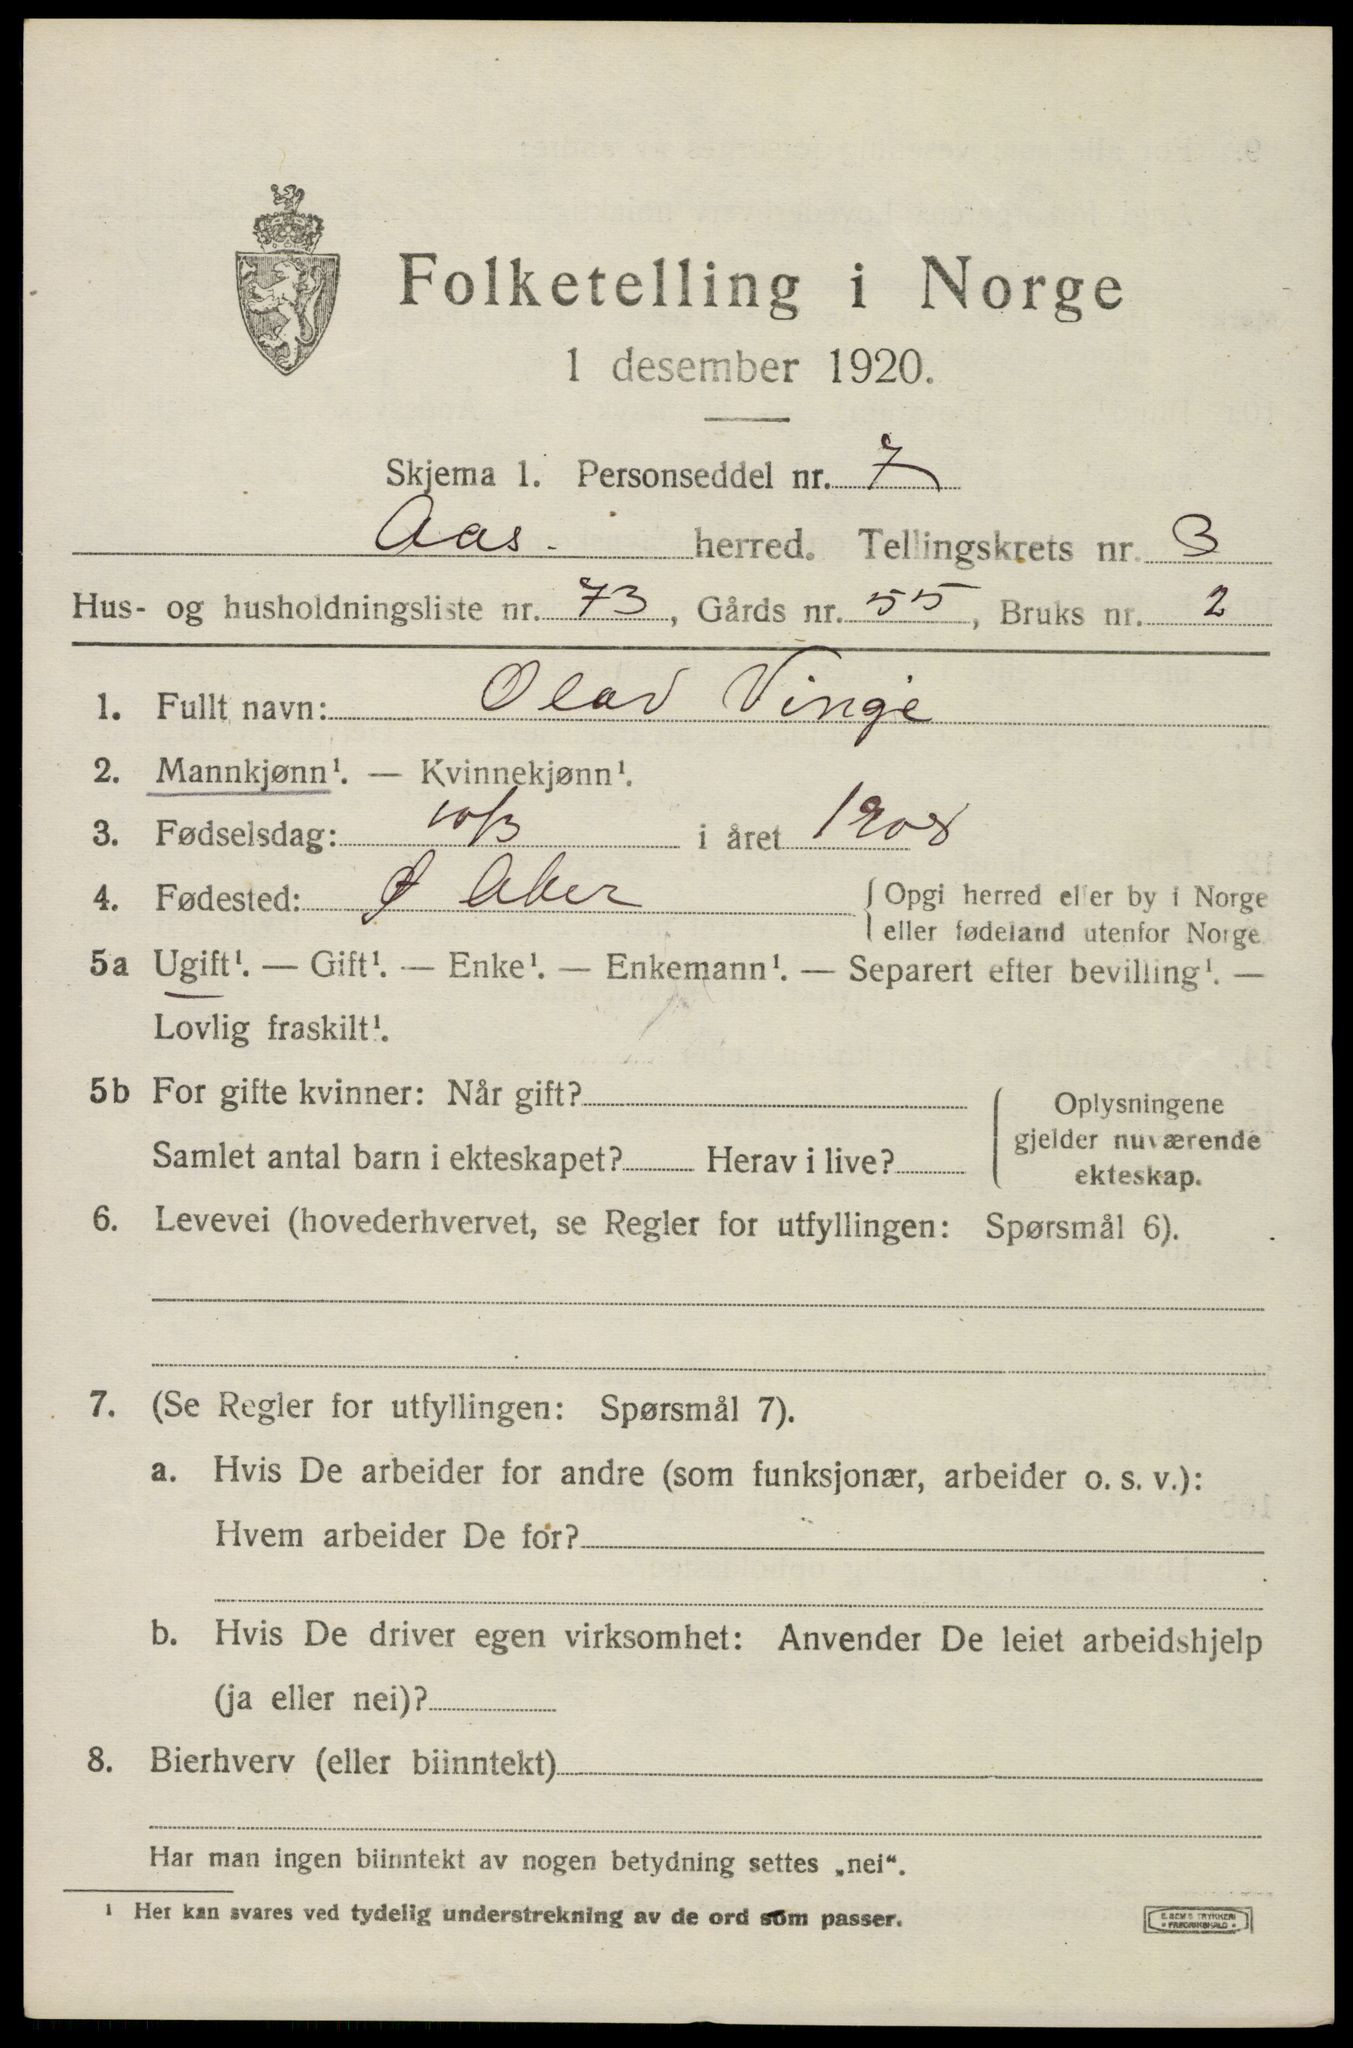 Folketelling i Norge
1 desember 1920.
Skjema 1. Personseddel nr. 7
Aas. herred. Tellingskrets nr. 3
Hus- og husholdningsliste nr. 73, Gårds nr. 55, Bruks nr. 2
1. Fullt navn: Olav Vinge
2. Mannkjønn¹. — Kvinnekjønn¹.
3. Fødselsdag: 10/3 i året 1908
4. Fødested: Ø Aker { Opgi herred eller by i Norge
eller fødeland utenfor Norge
5a Ugift¹. — Gift¹. — Enke¹. — Enkemann¹. — Separert efter bevilling¹. —
Lovlig fraskilt¹.
5b For gifte kvinner: Når gift?
Samlet antal barn i ekteskapet? Herav i live?
Oplysningene
gjelder nuværende
ekteskap.
6. Levevei (hovederhvervet, se Regler for utfyllingen: Spørsmål 6).
7. (Se Regler for utfyllingen: Spørsmål 7).
a. Hvis De arbeider for andre (som funksjonær, arbeider o. s. v.):
Hvem arbeider De for?
b. Hvis De driver egen virksomhet: Anvender De leiet arbeidshjelp
(ja eller nei)?
8. Bierhverv (eller biinntekt)
Har man ingen biinntekt av nogen betydning settes „nei“.
¹ Her kan svares ved tydelig understrekning av de ord som passer.
E. SEM'S TRYKKERI
• FREDRIKSHALD •